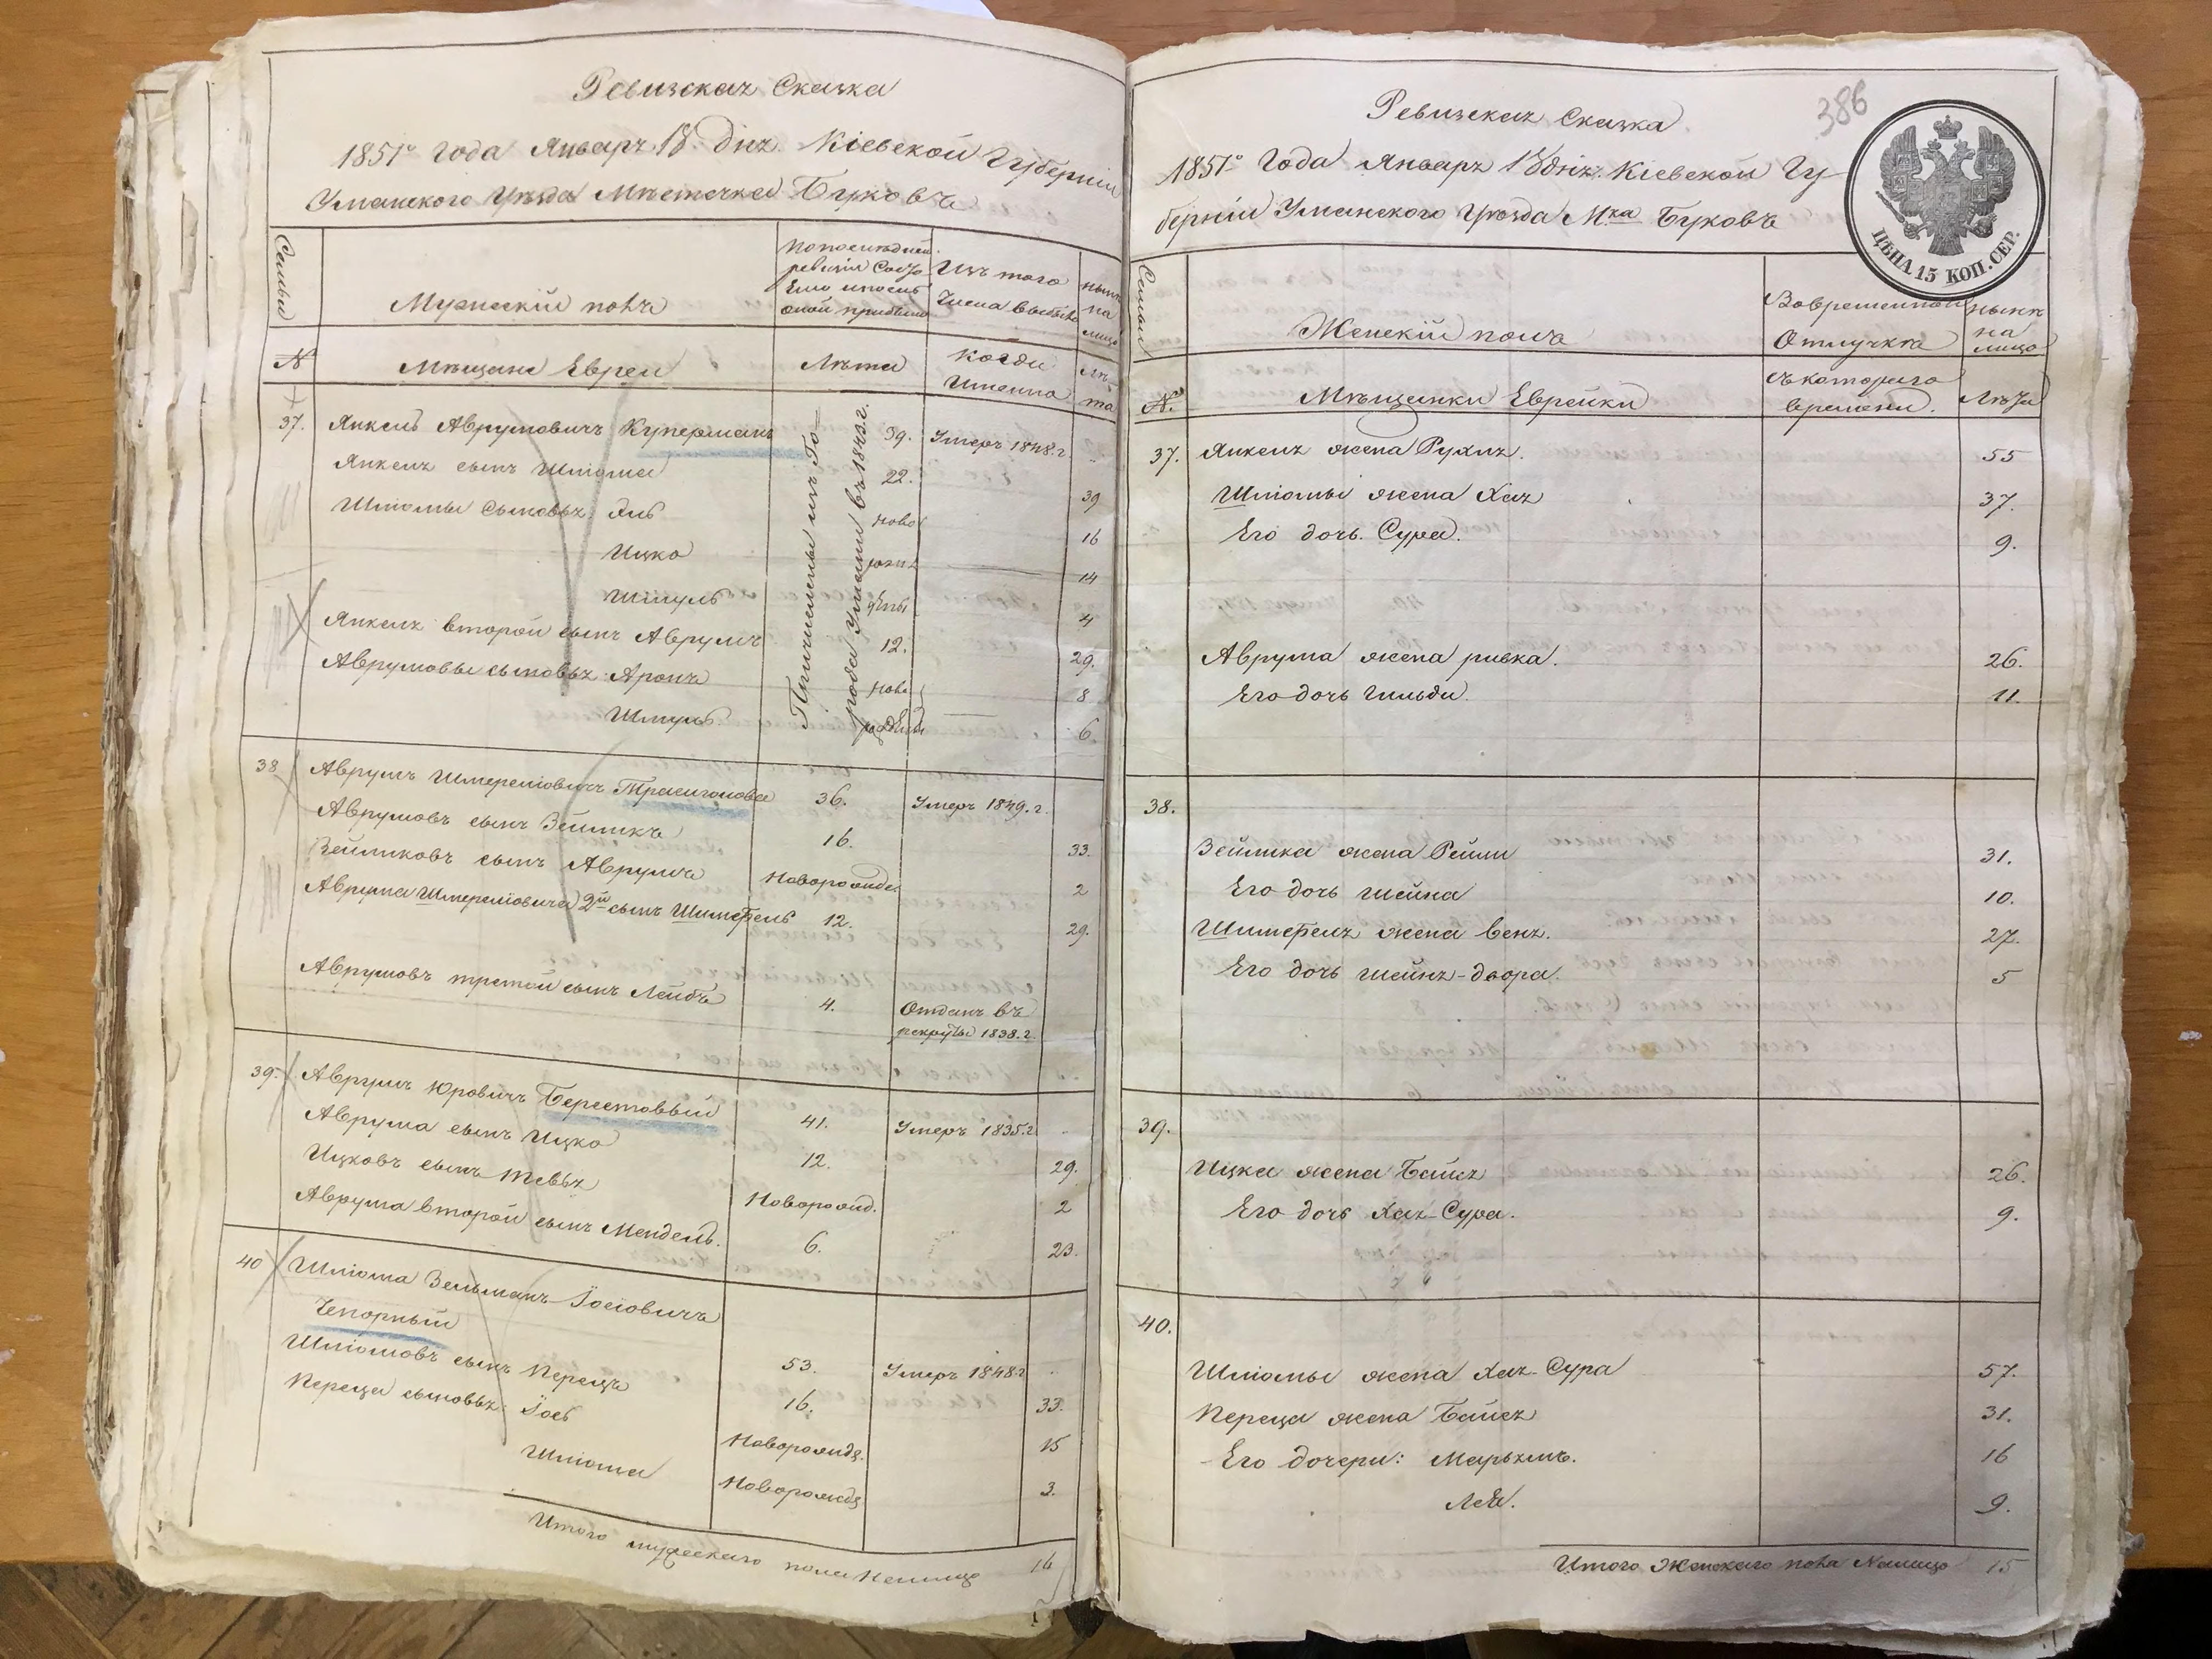 Ревизская Сказка
1851го года Январz 18 днz. Кіевской Губерніи
Уманскаго Уѣзда Мѣстечка Буковъ
Семьи
Мужескій полъ
По послѣдней
ревизіи Состо
Ело и послѣ
оной прибыло
Изъ того
Числа выбыло
нынѣ
на
лицо
№
Мѣщане Евреи
Лѣта
Когда
Именно
Лѣ-
та
Причислены изъ Го-
рода Умани въ 1843 г.
37. Янкель Аврумовичъ Куперманъ 39. Умеръ 1848. г.
Янкеля сынъ Шлiома 22. 39
Шлiомы сыновья: Янь ново 16
Ицко рожд 14
Шмуль дены 4
Янкеля второй сынъ Аврумъ 12. 29.
Аврумовы сыновья: Аронъ ново 8
Шмуль. рождены 6.
38 Аврумъ Шмерелiовичъ Трасиголова 36. Умеръ 1849. г.
Аврумовъ сынъ Зейликъ 16. 33.
Зейликовъ сынъ Аврумъ Новорожде 2
Аврума Шмерелiовича 2й сынъ Шимфель 12. 29.
Аврумовъ третой сынъ Лейбъ 4. Отданъ въ
рекруты 1838. г.
39. Аврумъ Юровичъ Берестовый 41. Умеръ 1835. г.
Аврума сынъ Ицко 12. 29.
Ицковъ сынъ Тевья Новорожд. 2
Аврума второй сынъ Мендель. 6. 23.
40 Шлiома Зельманъ Іосiовичъ
Чепорный 53. Умеръ 1848 г.
Шлiомовъ сынъ Перецъ 16. 33.
Переца сыновья: Іось Новорожде. 15
Шлiома Новорожде 3.
Итого мужескаго пола Налицо 16
Ревизская Сказка
386
1851го Года Январz 18 днz. Кіевской Гу-
берніи Уманскаго Уѣзда М.ка Буковъ
ЦѢНА 15 КОП. СЕР.
Семьи
Женскій полъ
Во временной
Отлучкѣ
нынѣ
на
лицо
№.
Мѣщанки Еврейки
съ котораго
времени.
Лѣта
37. Янкеля жена Рухля. 55
Шлiомы жена Хая 37.
Его дочь. Сура. 9.
Аврума жена ривка. 26.
Его дочь Гильди. 11.
38.
Зейлика жена Рейзи 31.
Его дочь шейна 10.
Шимфеля жена беня. 27.
Его дочь шейнz-двора. 5
39.
Ицка жена Байся 26.
Его дочь Хая-Сура. 9.
40.
Шлiомы жена Хая-Сура 57.
Переца жена Байся 31.
Его дочери: Марьямъ. 16
Лея. 9.
Итого Женскаго пола Налицо 15